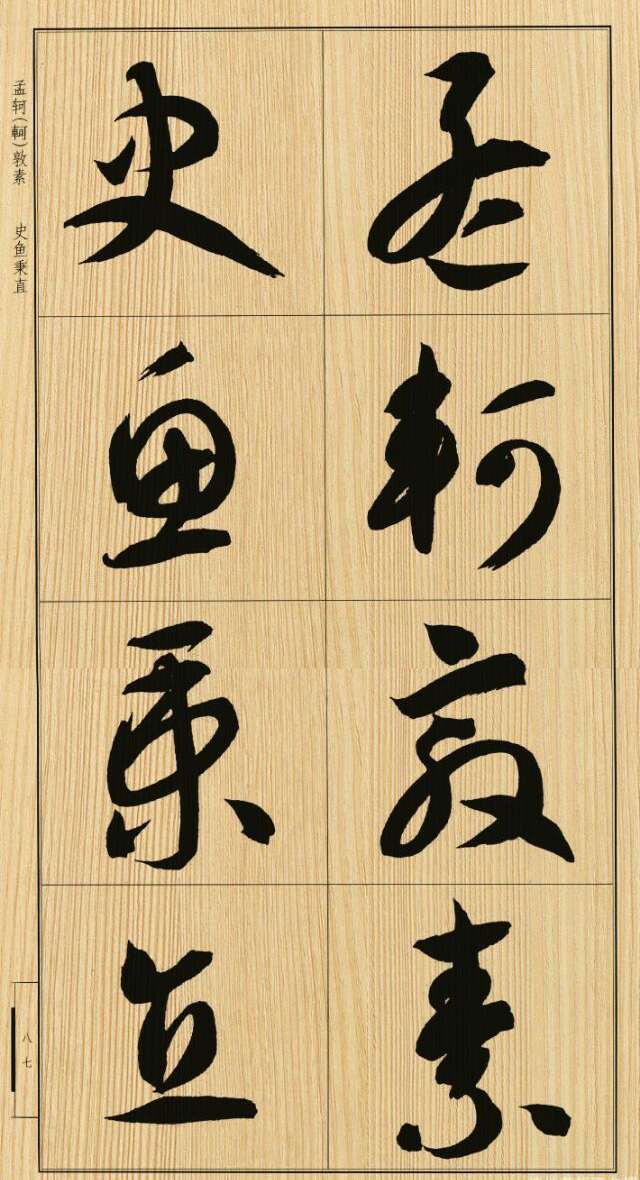 孟轲敦素
史鱼秉直
孟轲(軻)敦素 史鱼秉直
八七